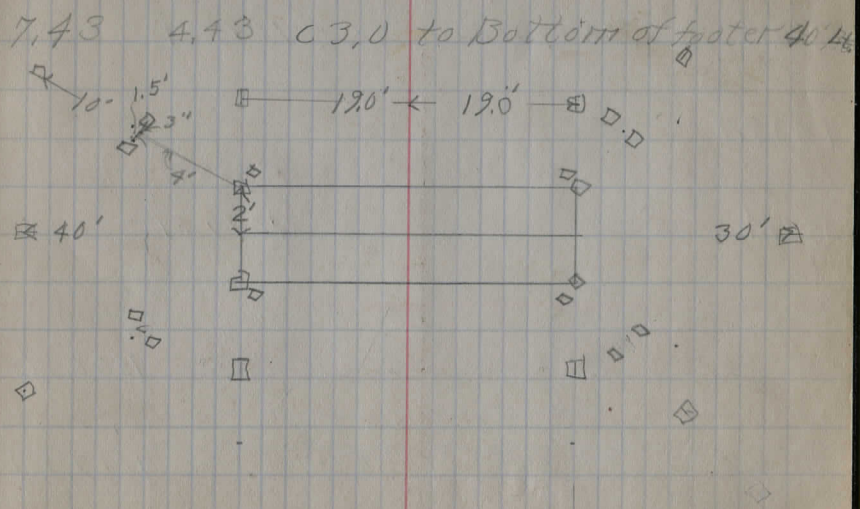 7,43 4,43 C 3,0 to Bottom of footer
1.5'
10'
3"
4'
19.0' 19.0'
2'
40' 30'